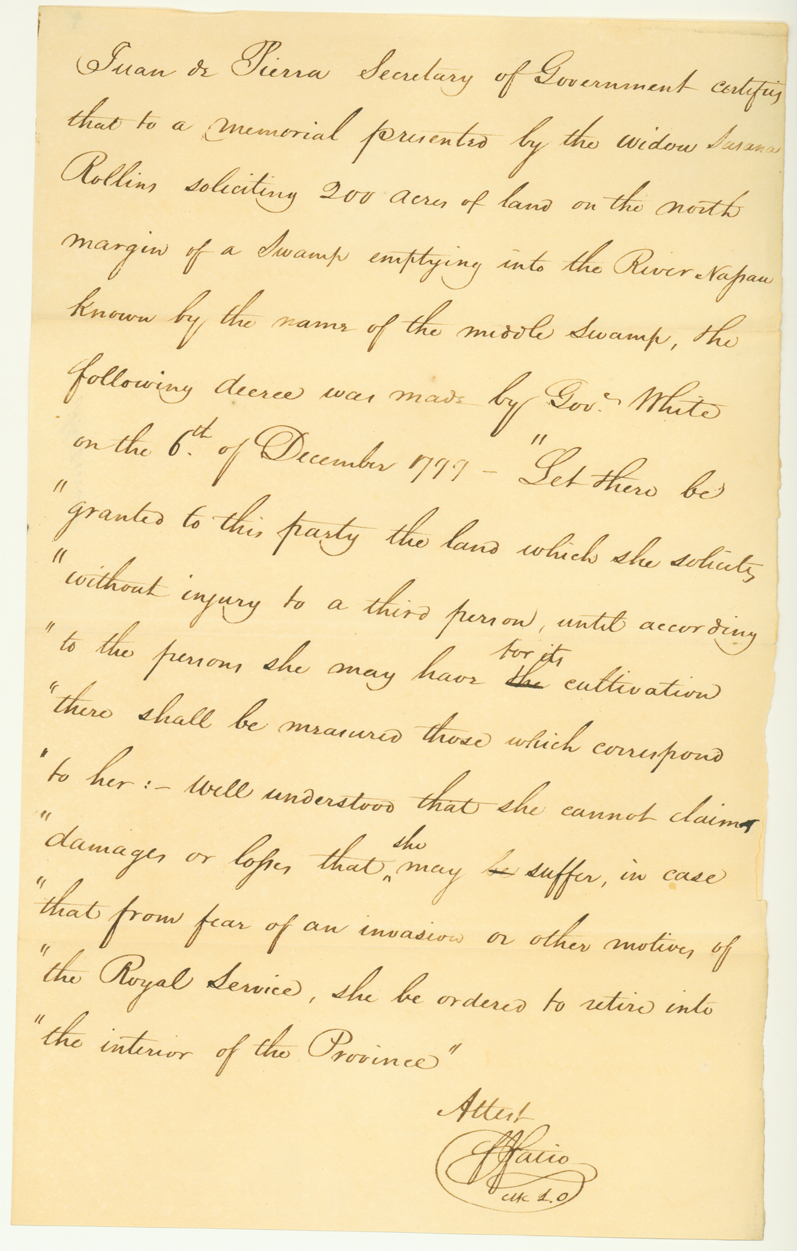 Juan de Pierra Secretary of Government certifies
that to a memorial presented by the widow Susana
Rollins soliciting 200 acres of land on the north
margin of a Swamp emptying into the River Nassau
known by the name of the middle Swamp, the
following decree was made by Govr. White
on the 6th. of December 1799 – "Let there be
"granted to this party the land which she solicits
"without injury to a third person, until according
"to the persons she may have for its the cultivation
"there shall be measured those which correspond
"to her :– Well understood that she cannot claim
"damages or losses that she may be suffer, in case
"that from fear of an invasion or other motives of
"the Royal Service, she be ordered to retire into
"the interior of the Province"
Attest
F J Fatio
Clk L.O